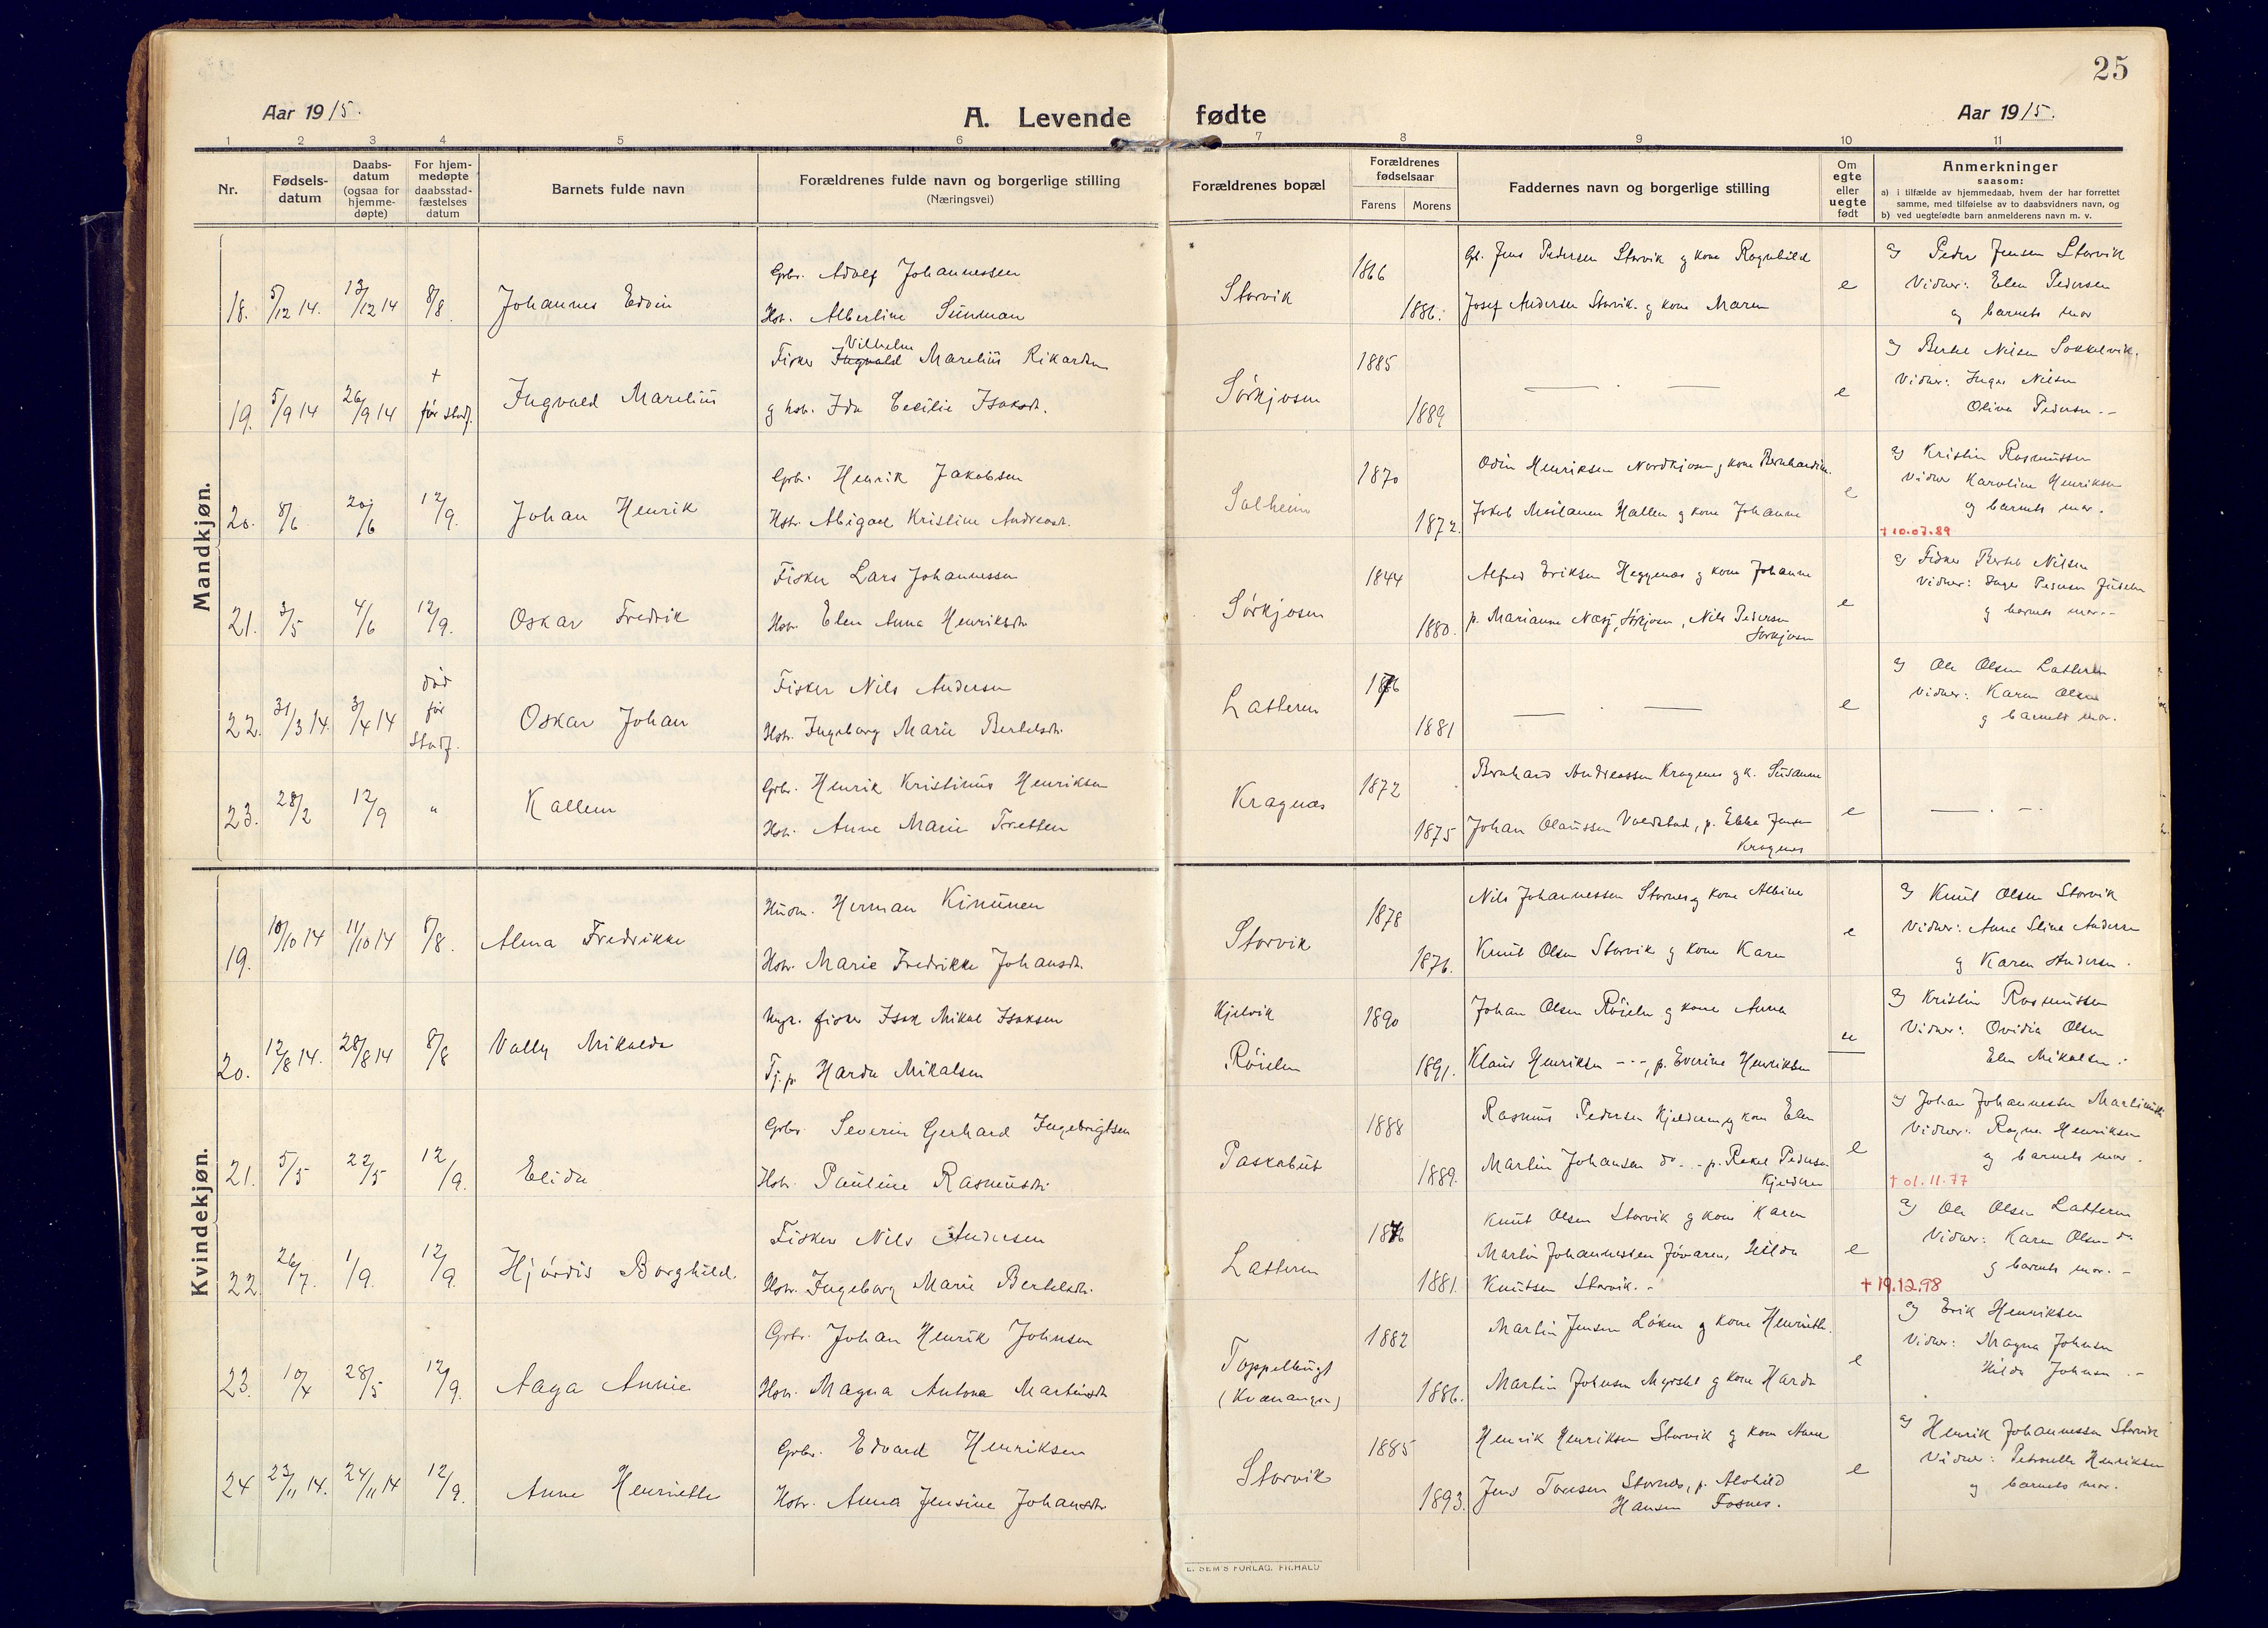 25
Aar 1915.
A. Levende fødte
Aar 1915.
1 2 3 4 5 6 7 8 9 10 11
Nr.
Fødselsdatum
Daabsdatum (ogsaa for hjemmedøpte)
For hjemmedøpte daabsstadfæstelses datum
Barnets fulde navn
Forældrenes fulde navn og borgerlige stilling
(Næringsvei)
Forældrenes bopæl
Forældrenes fødselsaar
Farens
Morens
Faddernes navn og borgerlige stilling
Om egte eller uegte født
Anmerkninger
saasom:
a) i tilfælde av hjemmedaab, hvem der har forrettet
samme, med tilføielse av to daabsvidners navn, og
b) ved uegtefødte barn anmelderens navn m. v.
Mandkjøn.
18. 5/12 14. 13/12 14 8/8 Johannes Edvin
Grbr. Adolf Johannessen
Hstr. Albertine Sunman
Storvik
1866
1886.
Gb. Jens Pedersen Storvik g kone Ragnhild
Josef Andersen Storvik. g kone Maren
e
a) Peder Jensen Storvik
Vidner: Elen Pedersen
og barnets mor
19. 5/9 14 26/9 14 † før stadf. Ingvald Marelius
Vilhelm
Fisker Ingvald Marelius Rikardsen
g hstr. Ida Cecilie Isaksdt.
Sørkjosen
1885
1889
e
a) Bertel Nilsen Sokkelvik.
Vidner: Inger Nilsen
Oline Pedersen --
20. 8/6 20/6 12/9. Johan Henrik
Grbr. Henrik Jakobsen
Hstr. Abigael Kristine Andreasdt.
Solheim
1870
1872.
Odin Henriksen Nordkjosen g kone Bernhardine.
Jakob Meilanen Hallen g kone Johanne
e
a) Kristin Rasmussen
Vidner Karoline Henriksen
og barnets mor.
† 10.07.89
21. 3/5 4/6 12/9. Oskar Fredrik
Fisker Lars Johannessen
Hstr. Elen Anna Henriksdtr
Sørkjosen
1844
1880.
Alfred Eriksen Heggenes g kone Johanne
p. Marianne Næsj, Sørkjosen, Nils Pedersen
Sørkjosen
e
a) Fisker Bertel Nilsen
Vidner: Inger Pedersen
g barnets mor --
22. 31/3 14. 3/4 14 død før stadf. Oskar Johan
Fisker Nils Andersen
Hstr. Ingeborg Marie Bertelsdtr.
Latteren
1876
1881
e
a) Ole Olsen Latteren
Vidner: Karen Olsen
g barnets mor.
23. 28/2 12/9 " Kallem
Grbr. Henrik Kristinus Henriksen
Hstr. Anne Marie Tretten
Kragnæs
1872
1875
Bernhard Andreassen Kragnes g k. Susanne
Johan Olaussen Voldstad, p. Ebba Jensen
Kragnes
e
Kvindekjøn.
19. 10/10 14 11/10 14 8/8. Alma Fredrikke
Husm. Herman Kinunen
Hstr. Marie Fredrikke Johansdt.
Storvik
1878
1876.
Nils Johannessen Stornes g kone Albine
Knut Olsen Storvik g kone Karen
e
a) Knut Olsen Storvik
Vidner: Anne Stine Andersen
g Karen Andersen.
20. 12/8 14. 28/8 14 8/8 Vally Mikalda
Ungk. fisker Isak Mikal Isaksen
Tj.p. Harda Mikalsen
Kjelvik
Røielen
1890
1891.
Johan Olsen Røielen g kone Anna
Klaus Henriksen ---, p. Everine Henriksen
u
a) Kristin Rasmussen
Vidner: Ovidia Olsen
Elen Mikalsen.
21. 5/5 22/5 12/9. Elida
Grbr. Severin Gerhard Ingebrigtsen
Hstr. Pauline Rasmusdt.
Paskabut
1888
1889.
Rasmus Pedersen Kjelderen g kone Elen
Martin Johansen do. -- p. Rakel Pedersen
Kjelderen
e
a) Johan Johannessen
Vidner: Ragna Henriksen
g barnets mor.
† 01.11.77
22. 26/7. 1/9. 12/9. Hjørdis Borghild.
Fisker Nils Andersen
Hstr. Ingeborg Marie Bertelsdtr.
Latteren
1876
1881.
Knut Olsen Storvik g kone Karen
Martin Johannessen, Hilda
Knutsen Storvik. -
e
a) Ole Olsen Latteren
Vidner: Karen Olsen do
g barnets mor. -
† 19.12.98
23. 10/4 28/5 12/9. Aaga Annie
Grbr. Johan Henrik Johnsen
Hstr. Magna Antona Martinsdt
Toppelbugt
(Kvænangen)
1882
1886.
Martin Jensen Løken g kone Henriette.
Martin Johnsen g kone Harda
e
a) Erik Henriksen
Vidner: Magna Johnsen
Hilda Johnsen. -
24 23/11 14. 24/11 14 12/9. Anne Henriette
Grbr. Edvard Henriksen
Hstr. Anna Jensine Johansdtr
Storvik
1885
1893.
Henrik Henriksen Storvik g kone Anne
Jens Tomsen Stornes, p. Alvhild
Hansen Fosnes.
e
a) Henrik Johannessen Storvik
Vidner: Petronelle Henriksen
g barnets mor.
E. SEM'S FORLAG. FR.HALD